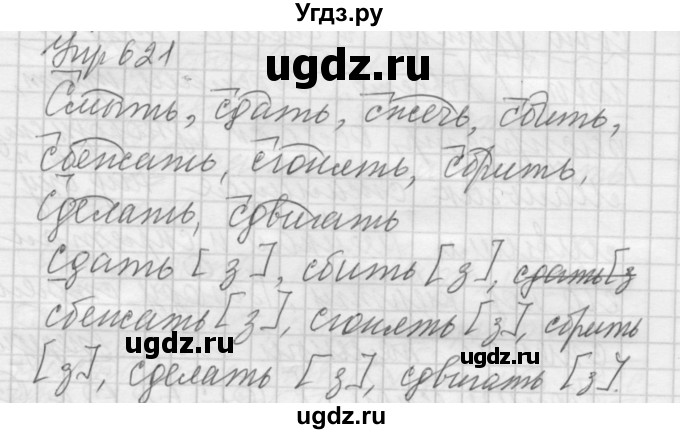 Угдз.ру
Упр 621
ugdz.ru
Смыть, сдать, сжечь, сбить,
сбежать, сгонять, сбрить,
Сделать, сдвигать
сдать [з], сбить [з], сдать [з
ugdz.ru
сбежать [з], сгонять [з], сбрить
ugdz.ru
[з], сделать [з], сдвигать [з].
ugdz.ru